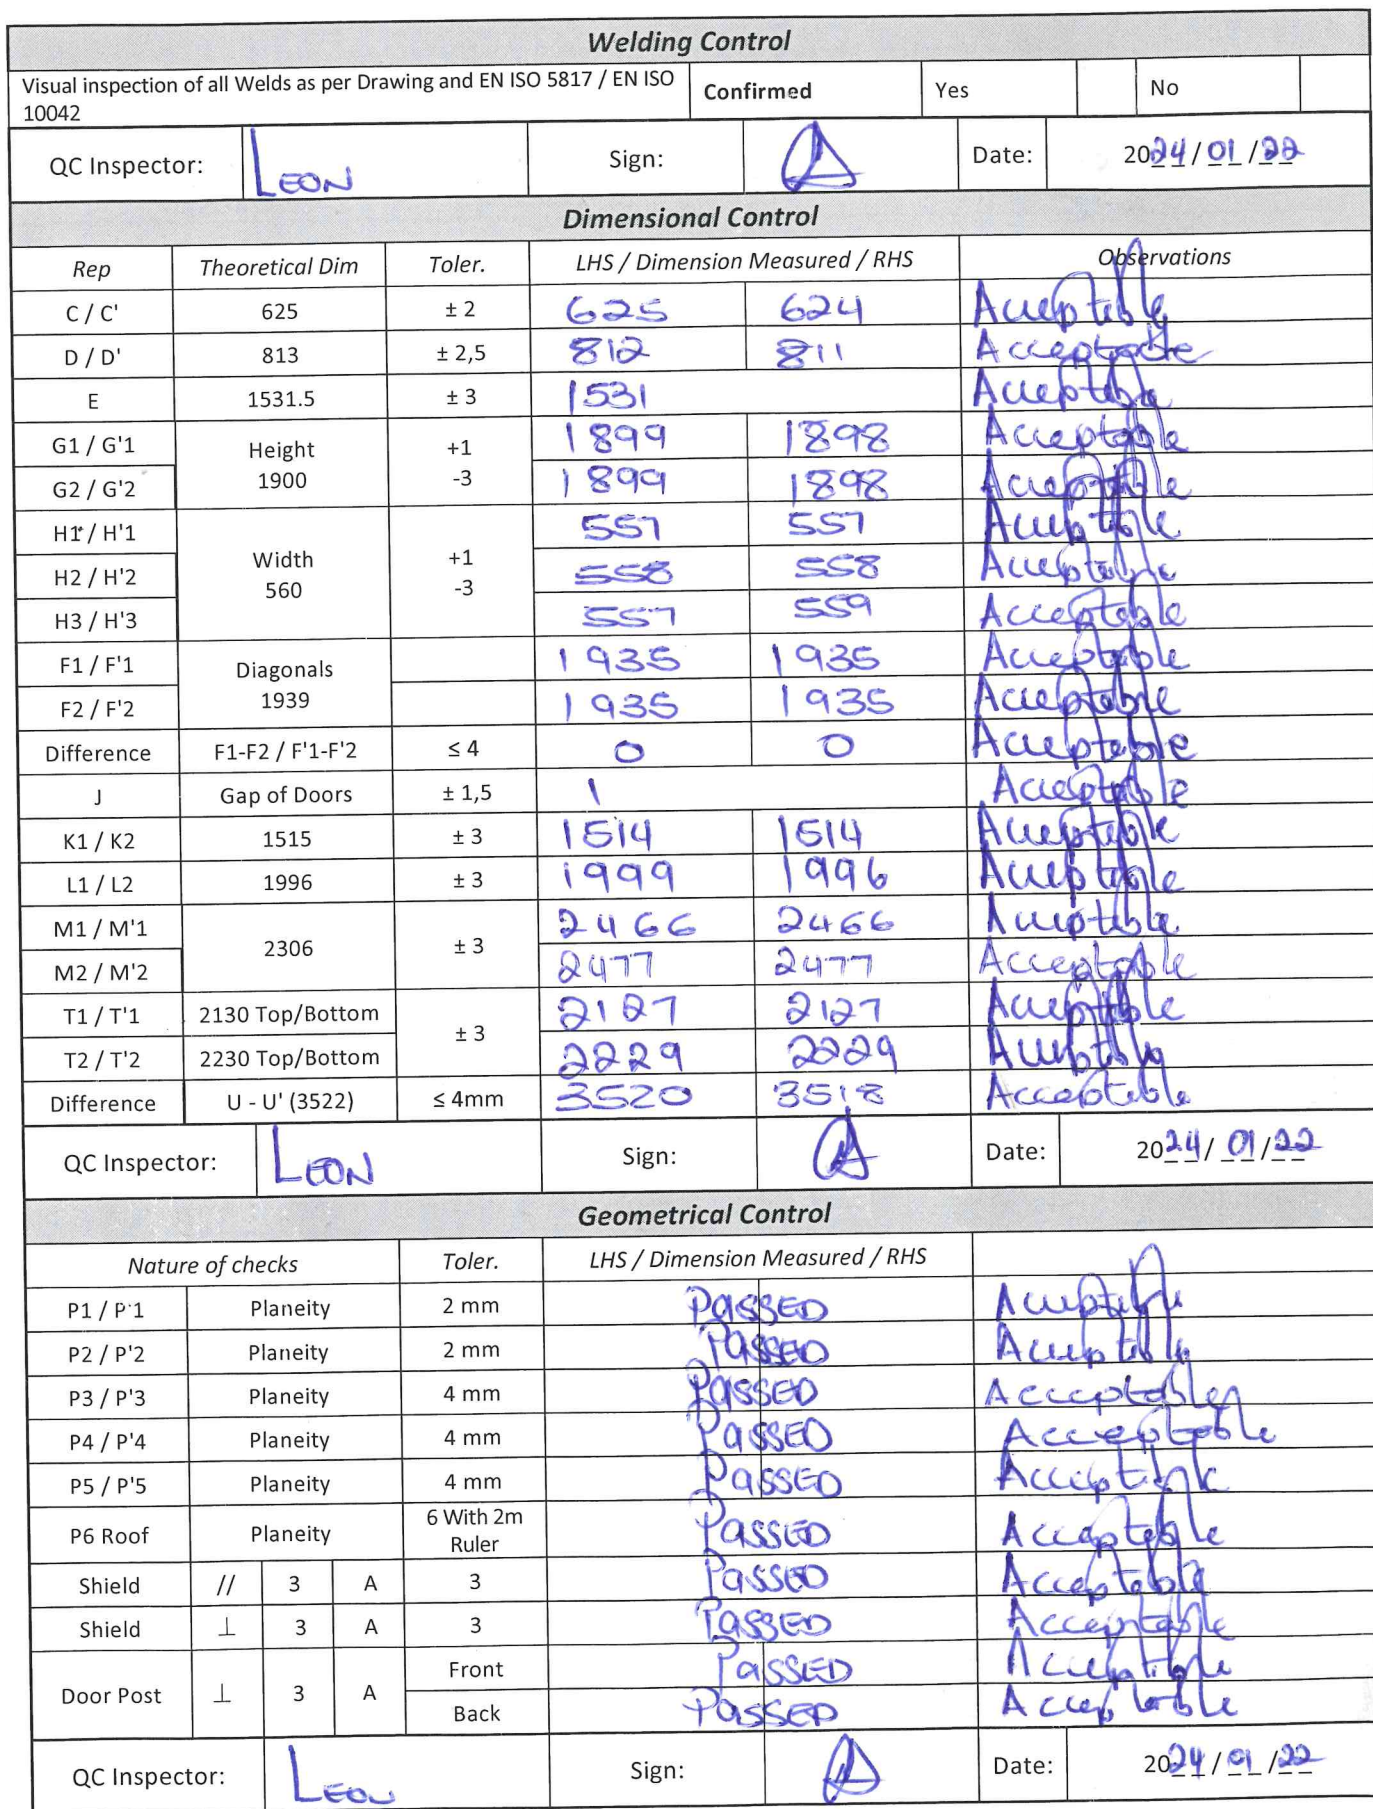 Welding Control
Visual inspection of all Welds as per Drawing and EN ISO 5817 / EN ISO 10042 Confirmed Yes No
QC Inspector: LEON Sign: Date: 2024/01/22
Dimensional Control
Rep Theoretical Dim Toler. LHS / Dimension Measured / RHS Observations
C / C' 625 ± 2 625 624 Acceptable
D / D' 813 ± 2,5 812 811 Acceptable
E 1531.5 ± 3 1531 Acceptable
G1 / G'1 Height 1900 +1 -3 1899 1898 Acceptable
G2 / G'2 1899 1898 Acceptable
H1 / H'1 Width 560 +1 -3 557 557 Acceptable
H2 / H'2 558 558 Acceptable
H3 / H'3 557 559 Acceptable
F1 / F'1 Diagonals 1939 1935 1935 Acceptable
F2 / F'2 1935 1935 Acceptable
Difference F1-F2 / F'1-F'2 ≤ 4 0 0 Acceptable
J Gap of Doors ± 1,5 1 Acceptable
K1 / K2 1515 ± 3 1514 1514 Acceptable
L1 / L2 1996 ± 3 1999 1996 Acceptable
M1 / M'1 2306 ± 3 2466 2466 Acceptable
M2 / M'2 2477 2477 Acceptable
T1 / T'1 2130 Top/Bottom ± 3 2127 2127 Acceptable
T2 / T'2 2230 Top/Bottom 2229 2229 Acceptable
Difference U - U' (3522) ≤ 4mm 3520 3518 Acceptable
QC Inspector: LEON Sign: Date: 2024/01/22
Geometrical Control
Nature of checks Toler. LHS / Dimension Measured / RHS
P1 / P'1 Planeity 2 mm PASSED Acceptable
P2 / P'2 Planeity 2 mm PASSED Acceptable
P3 / P'3 Planeity 4 mm PASSED Acceptable
P4 / P'4 Planeity 4 mm PASSED Acceptable
P5 / P'5 Planeity 4 mm PASSED Acceptable
P6 Roof Planeity 6 With 2m Ruler PASSED Acceptable
Shield // 3 A 3 PASSED Acceptable
Shield ⊥ 3 A 3 PASSED Acceptable
Door Post ⊥ 3 A Front PASSED Acceptable
Back PASSED Acceptable
QC Inspector: LEON Sign: Date: 2024/01/22